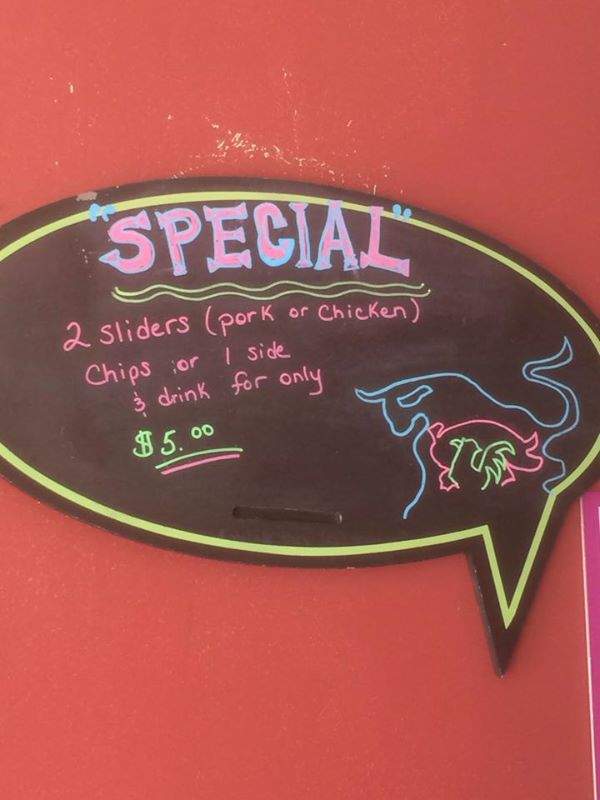 "SPECIAL"
2 sliders (pork or Chicken)
Chips or 1 side
& drink for only
$5.00